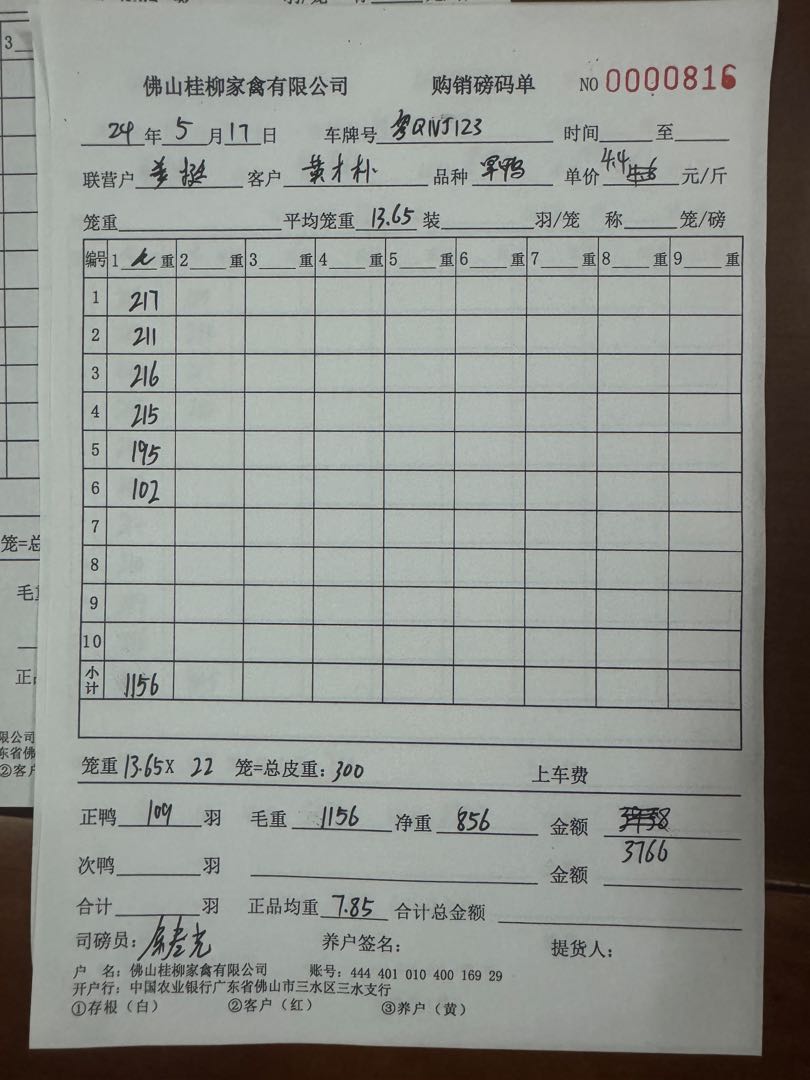 佛山桂柳家禽有限公司 购销磅码单 NO 0000816
24 年 5 月 17 日 车牌号 粤QNJ123 时间 至
联营户 客户 黄才朴 品种 旱鸭 单价 4.4 元/斤
笼重 平均笼重 13.65 装 羽/笼 称 笼/磅
编号 1 重 2 重 3 重 4 重 5 重 6 重 7 重 8 重 9 重
1 217
2 211
3 216
4 215
5 195
6 102
7
8
9
10
小计 1156
笼重 13.65X 22 笼=总皮重: 300 上车费
正鸭 109 羽 毛重 1156 净重 856 金额 3938
3766
次鸭 羽 金额
合计 羽 正品均重 7.85 合计总金额
司磅员: 养户签名: 提货人:
户 名: 佛山桂柳家禽有限公司 账号: 444 401 010 400 169 29
开户行: 中国农业银行广东省佛山市三水区三水支行
①存根（白） ②客户（红） ③养户（黄）
3
笼=总
毛重
正品
限公司
东省佛
②客户